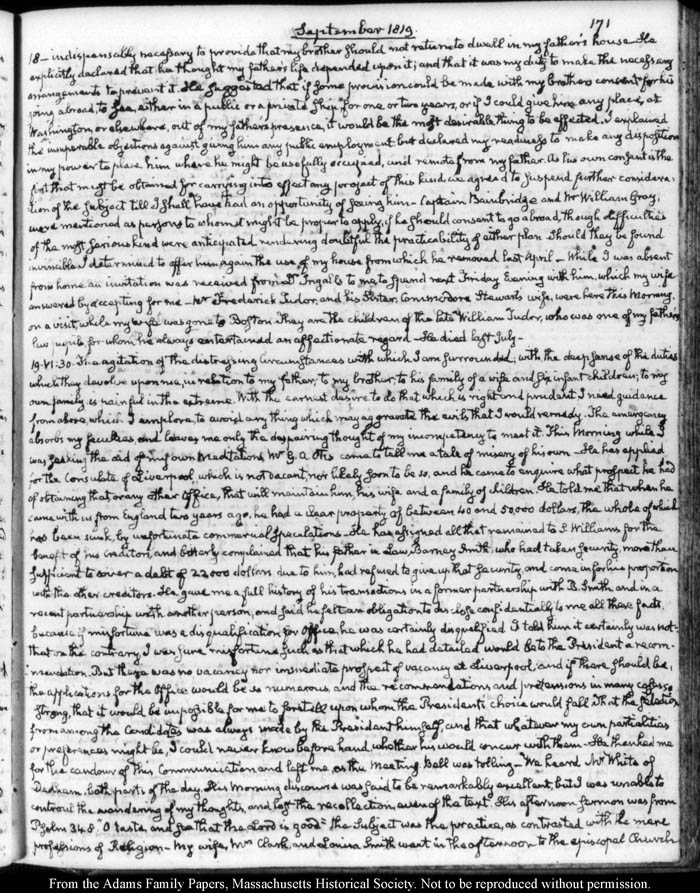 September 1819.
171
18 – indispensably necessary to provide that my brother should not return to dwell in my father's house. He
explicitly declared that he thought my father's life depended upon it; and that it was my duty to make the necessary
arrangements to prevent it. He suggested that if some provision could be made with my brother's consent for his
going abroad, to Sea, either in a public or a private Ship for one or two years, or if I could give him any place, at
Washington, or elsewhere, out of my father's presence, it would be the most desirable thing to be effected. I explained
the insuperable objections against giving him any public employment but declared my readiness to make any disposition
in my power to place him where he might be usefully occupied, and remote from my father. As his own consent is the
first that must be obtained for carrying into effect any project of this kind, we agreed to suspend further considera-
tion of the subject till I shall have had an opportunity of seeing him – Captain Bainbridge and Mr William Gray,
were mentioned as persons to whom it might be proper to apply, if he should consent to go abroad, though difficulties
of the most serious kind were anticipated rendering doubtful the practicability of either plan. Should they be found
invincible I determined to offer him again the use of my house from which he removed last April – While I was absent
from home an invitation was received from Dr Ingalls to me to spend next Friday Evening with him, which my wife
answered by accepting for me – Mr Frederick Tudor, and his Sister, Commodore Stewart's wife, were here this Morning,
on a visit, while my wife was gone to Boston. They are the children of the late William Tudor, who was one of my father's
law pupils for whom he always entertained an affectionate regard – He died last July –
19. VI:30. The agitation of the distressing circumstances with which I am surrounded; with the deep sense of the duties
which they devolve upon me, in relation to my father; to my brother; to his family of a wife and six infant children; to my
own family is painful in the extreme. With the earnest desire to do that which is right and prudent I need guidance
from above, which I implore, to avoid any thing which may aggravate the evils that I would remedy. The emergency
absorbs my faculties, and leaves me only the despairing thought of my incompetency to meet it. This Morning while I
was seeking the aid of my own Meditations, Mr G. A. Otis came to tell me a tale of misery of his own – He has applied
for the Consulate of Liverpool, which is not vacant, nor likely soon to be so, and he came to enquire what prospect he had
of obtaining that or any other Office, that will maintain him, his wife and a family of children. He told me that when he
came with us from England two years ago, he had a clear property of between 40 and 50,000 dollars, the whole of which
has been sunk, by unfortunate commercial speculations – He has assigned all that remained to S. Williams for the
benefit of his creditors, and bitterly complained that his father in Law, Barney Smith, who had taken security, more than
sufficient to cover a debt of 22000 dollars due to him, had refused to give up that security and come in for his proportion
with the other creditors. He gave me a full history of his transactions in a former partnership with B. Smith and in a
recent partnership with another person, and said he felt an obligation to disclose confidentially to me all these facts,
because if misfortune was a disqualification for Office, he was certainly disqualified. I told him it certainly was not –
that on the contrary, I was sure misfortune such as that which he had detailed would be to the President a recom-
mendation. But there was no vacancy nor immediate prospect of vacancy at Liverpool, and if there should be,
the applications for the Office would be so numerous, and the recommendations and pretensions in many cases so
strong, that it would be impossible for me to foretell upon whom the President's choice would fall. That the selection
from among the Candidates was always made by the President himself, and that whatever my own partialities
or preferences might be, I could never know beforehand whether his would concur with them – He thanked me
for the candour of this Communication and left me, as the Meeting Bell was tolling – We heard Mr White of
Dedham, both parts of the day. His Morning discourse was said to be remarkably excellent, but I was unable to
controul the wandering of my thoughts, and lost the recollection, even of the text. His afternoon sermon was from
Psalm 34.8. "O taste, and see that the Lord is good" the Subject was the practice, as contrasted with the mere
professions of Religion – My wife, Mrs Clark, and Louisa Smith went in the afternoon to the episcopal Church
From the Adams Family Papers, Massachusetts Historical Society. Not to be reproduced without permission.